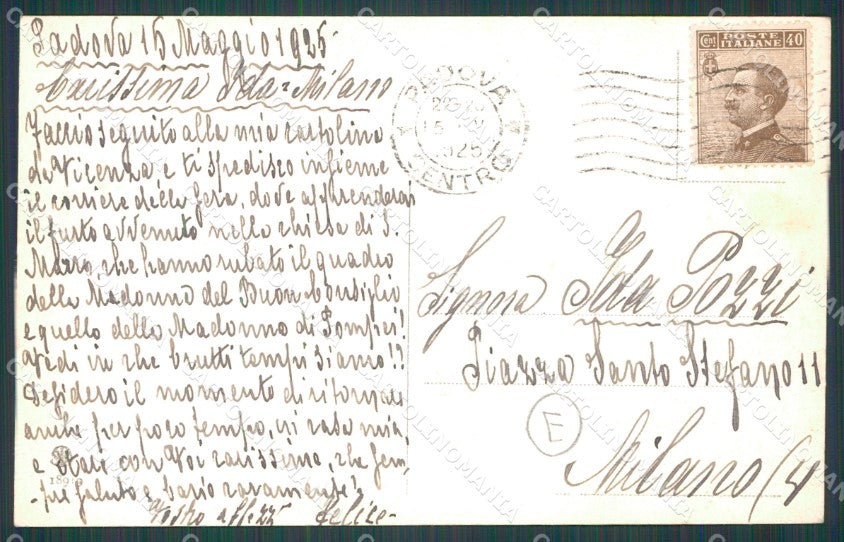 Padova 15 Maggio 1925-
Carissima Ida = Milano
Faccio seguito alla mia cartolina
da Vicenza e ti spedisco insieme
il corriere della sera, dove apprenderai
il furto avvenuto nella chiesa di S.
Marco, che hanno rubato il quadro
della Madonna del Buon Consiglio
e quello della Madonna di Pompei!
Vedi in che brutti tempi siamo!!
Desidero il momento di ritornare
anche per poco tempo, in casa mia,
e stare con Voi carissime, che sem-
-pre saluto e bacio caramente!
Vostro aff.zz Felice-
189
PADOVA
15
1925
CENTRO
Cent POSTE ITALIANE 40
Signora Ida Pozzi
Piazza Santo Stefano 11
E
Milano (4
CARTOLINOMANIA